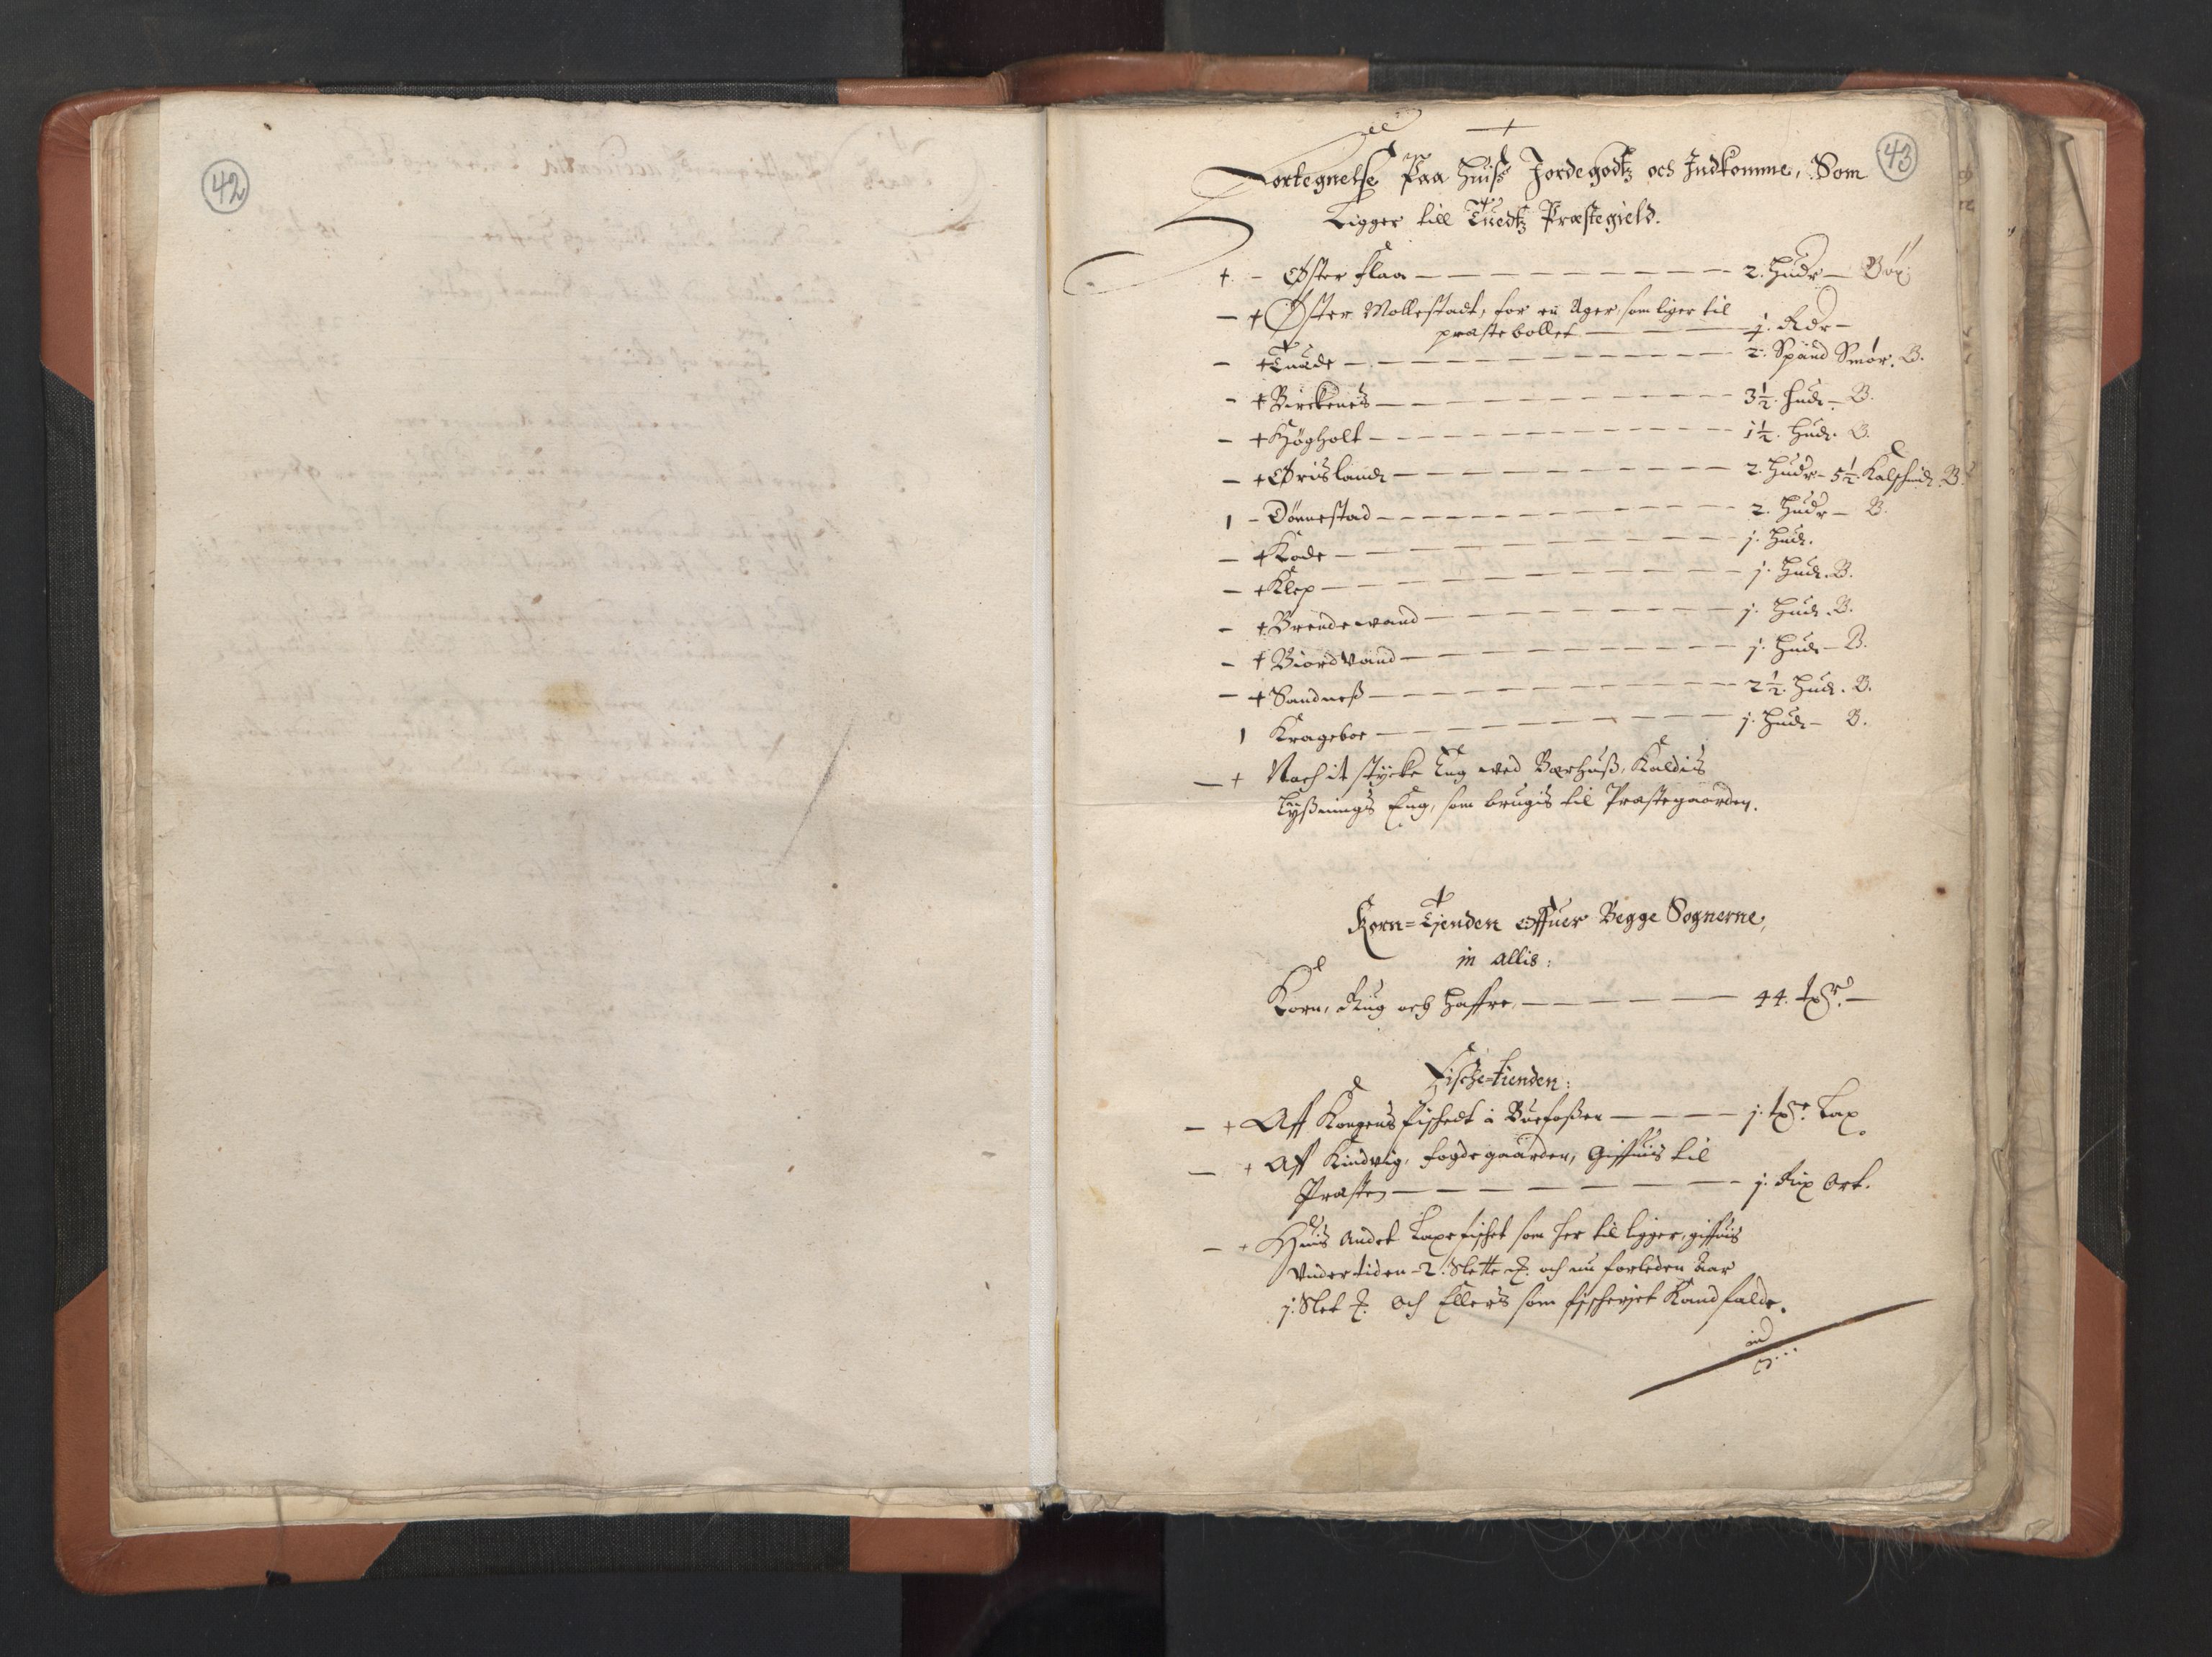 42
43
Fortegnelse Paa Huiß Jordegodtz och Indkomme, Som
Ligger till Tuedtz Præstegield.
+ - Øster flaa - 2. Hudr - Böx:
- + Øster Mollestadt, for en Ager, som liger til
præstebollet - j. Rdr -
- + Tuade - 2. Spand Smør. B.
- + Birckenes - 3½. Hudr - B.
- + Høgholt - 1½ Hudr. B.
- + Ørislandt - 2. Hudr - 5½ Kalfskind. B.
1 - Dönnestad - 2. Hudr - B.
- + Kode - j. Hud.
- + Klep - j. Hud. B.
- + Brendewand - j. Hud. B.
- + Biordvand - j. Hud - B.
- + Sandneß - 2½. Hud. B.
1 Krageboe - j. Hud - B.
- + Noch it stycke Eng ved Bærhuß, Kaldis
Lyßnings Eng, som brugis til Præstegaarden.
Korn=Tjenden offuer Begge Sognerne,
in allis:
Korn, Rug och Haffre, - 44. tr -
Fische=tienden:
- + Aff Kongens fischedt i Boefoßen - j. tr. Lax
- + Aff Kindvig, fogdegaarden, Giffuis til
Præsten - j. Rix ort.
- + Huis Andet Laxefischet som her til ligger, giffuis
vndertiden - 2. Slette d. och nu forleden Aar
j. Slet d. och Ellers som fischerjet Kand falde.